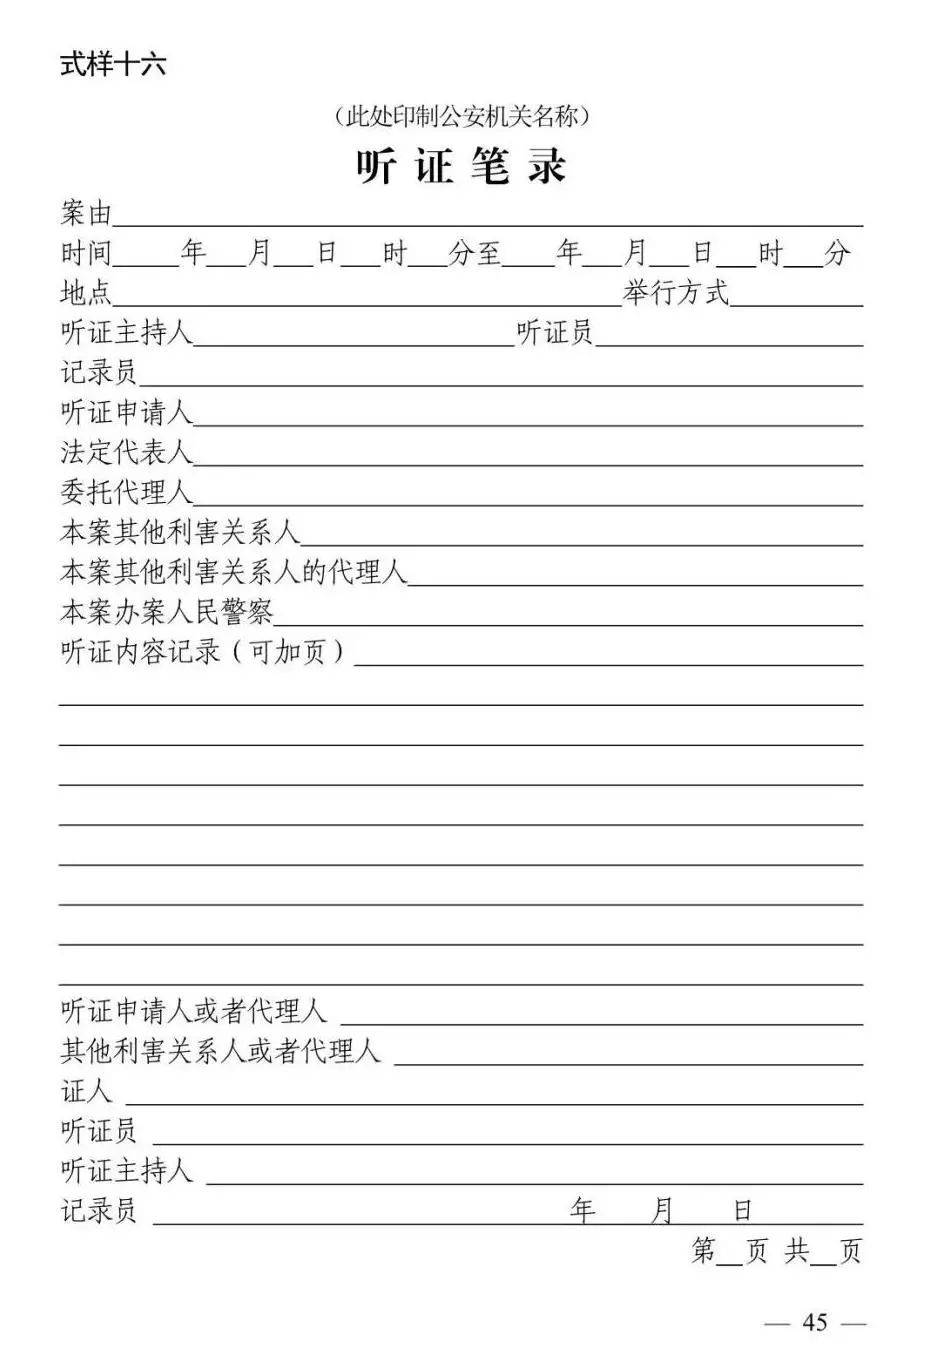 式样十六
（此处印制公安机关名称）
听证笔录
案由
时间____年__月__日__时__分至____年__月__日__时__分
地点____举行方式____
听证主持人____听证员____
记录员
听证申请人
法定代表人
委托代理人
本案其他利害关系人
本案其他利害关系人的代理人
本案办案人民警察
听证内容记录（可加页）
听证申请人或者代理人
其他利害关系人或者代理人
证人
听证员
听证主持人
记录员 年 月 日
第__页 共__页
— 45 —